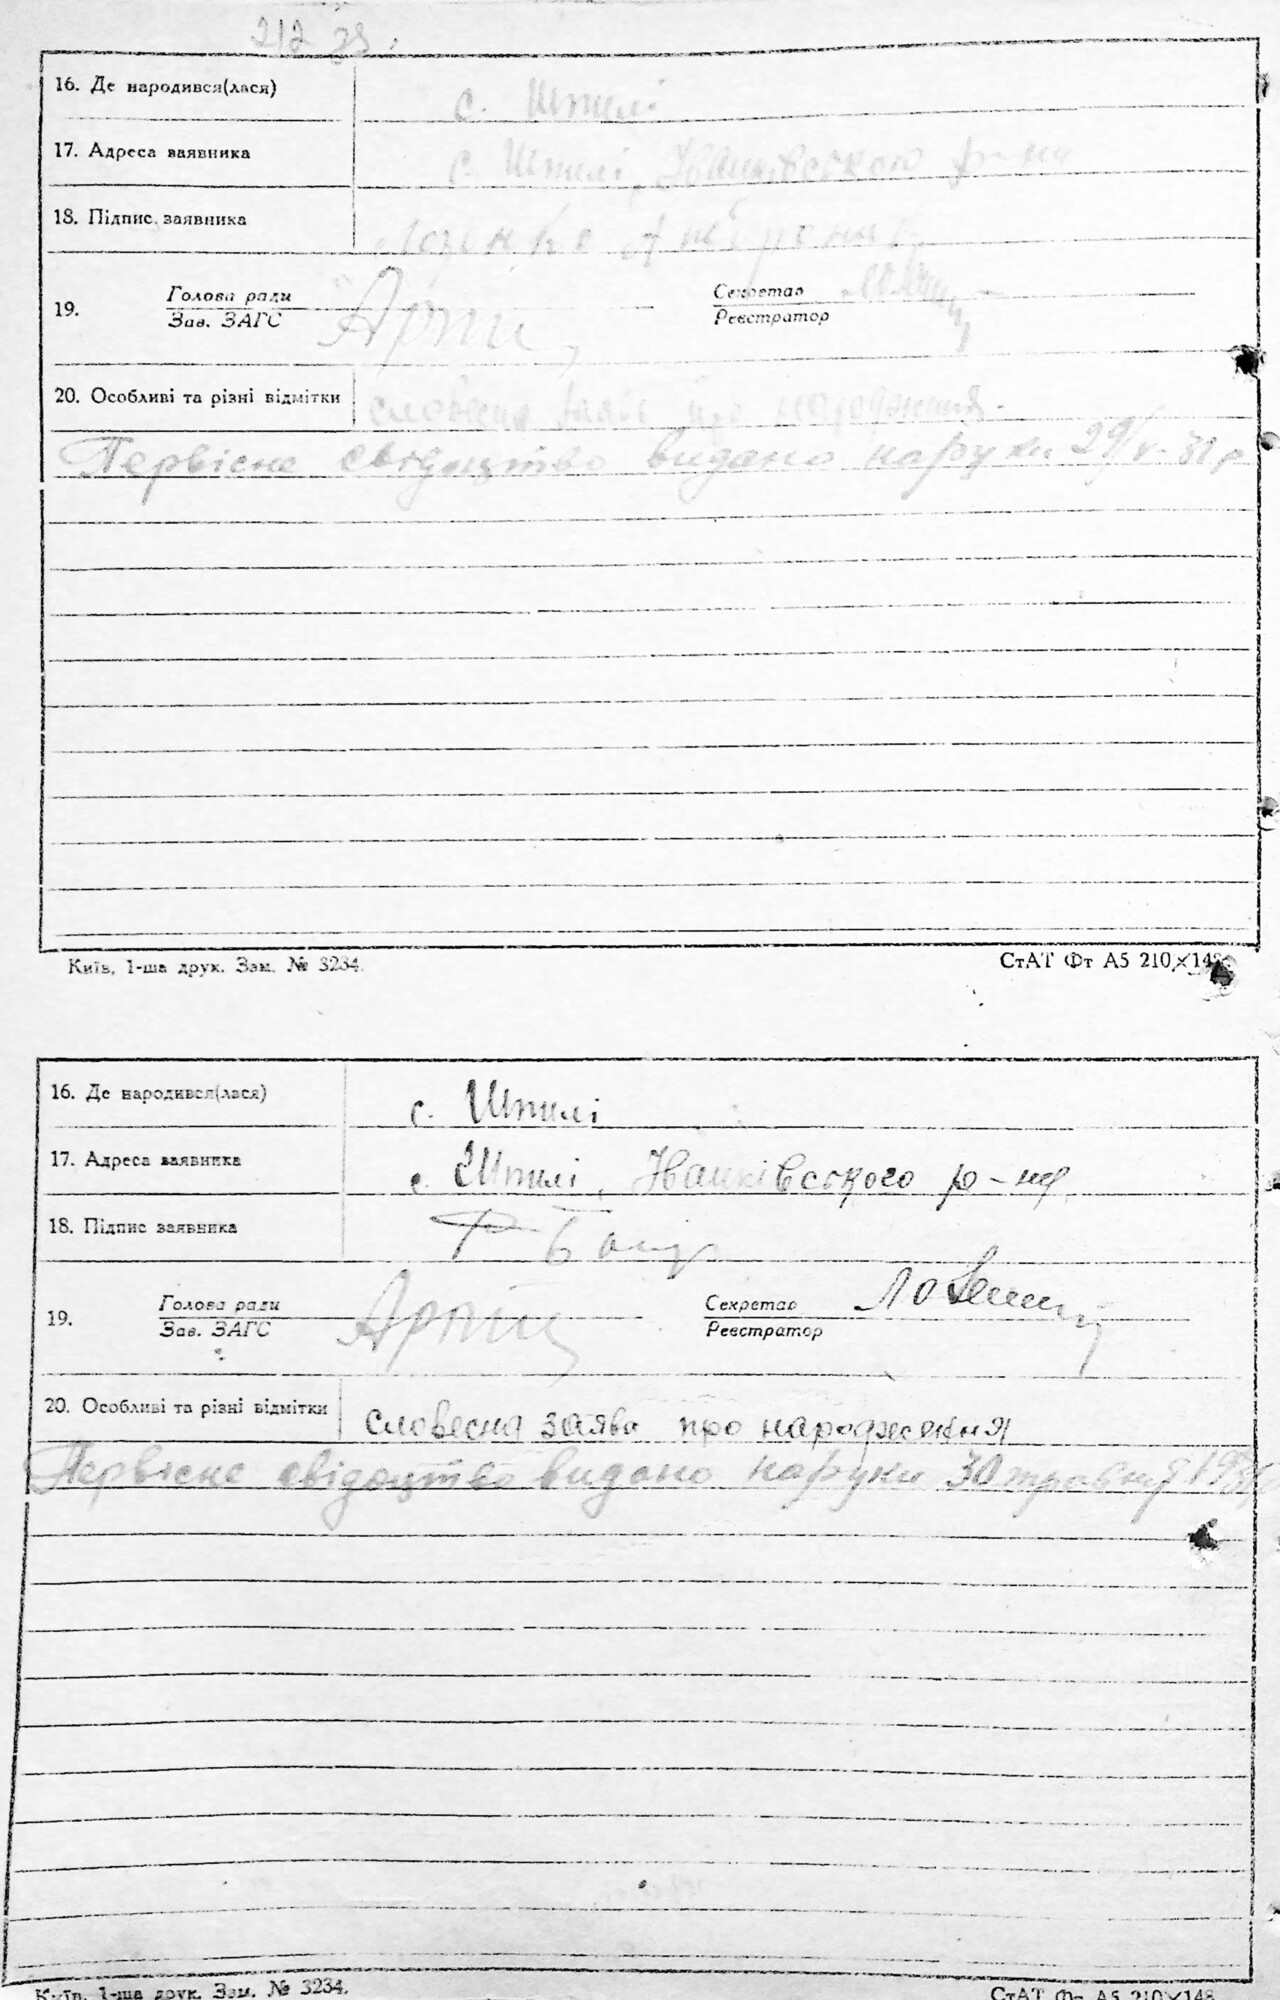 212 зв.
16. Де народився(лася) с. Шпилі
17. Адреса заявника с. Шпилі, Іванківського р-на
18. Підпис заявника
19. Голова ради
Зав. ЗАГС
Секретар
Реєстратор
20. Особливі та різні відмітки словесна заява про народження
Первісне свідоцтво видано наруки 29/V-31 р
Київ, 1-ша друк. Зам. № 3234.
СтАТ Фт А5 210×148
16. Де народився(лася) с. Шпилі
17. Адреса заявника с. Шпилі, Іванківського р-на
18. Підпис заявника
19. Голова ради
Зав. ЗАГС
Секретар
Реєстратор
20. Особливі та різні відмітки словесна заява про народження
Первісне свідоцтво видано наруки 30 травня 1931
Київ, 1-ша друк. Зам. № 3234.
СтАТ Фт А5 210×148